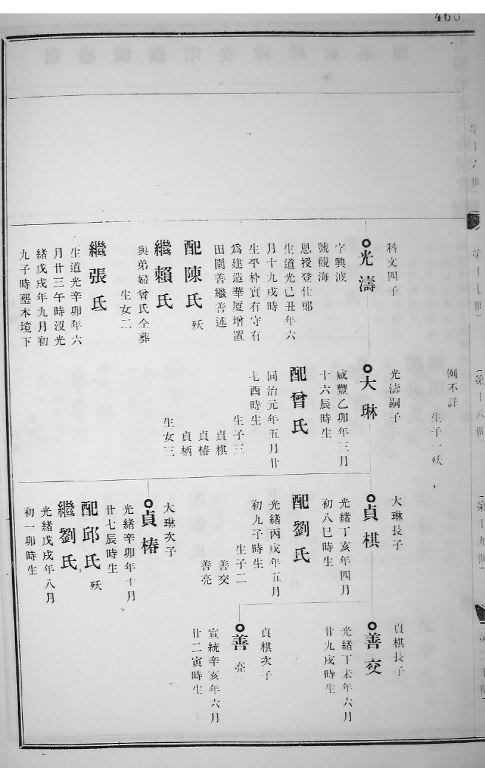 460
科文四子
光濤
字興波
號觀海
恩授登仕郎
生道光己丑年六
月十九戌時
生平朴實有守有
為建造華厦增置
田園善繼善述
配陳氏 殀
繼賴氏
與弟婦曾氏仝葬
生女二
繼張氏
生道光辛卯年六
月廿三午時沒光
緒戊戌年九月初
九子時塟本境下
例不詳
生子一 殀
光濤嗣子
大琳
咸豐乙卯年三月
十六辰時生
配曾氏
同治元年五月廿
七酉時生
生子三
貞棋
貞椿
貞柄
生女三
大琳長子
貞棋
光緒丁亥年四月
初八巳時生
配劉氏
光緒丙戌年五月
初九子時生
生子二
善交
善亮
大琳次子
貞椿
光緒辛卯年十月
廿七辰時生
配邱氏 殀
繼劉氏
光緒戊戌年八月
初一卯時生
貞棋長子
善交
光緒丁未年六月
廿九戌時生
貞棋次子
善亮
宣統辛亥年六月
廿二寅時生
第十八世
第十九世